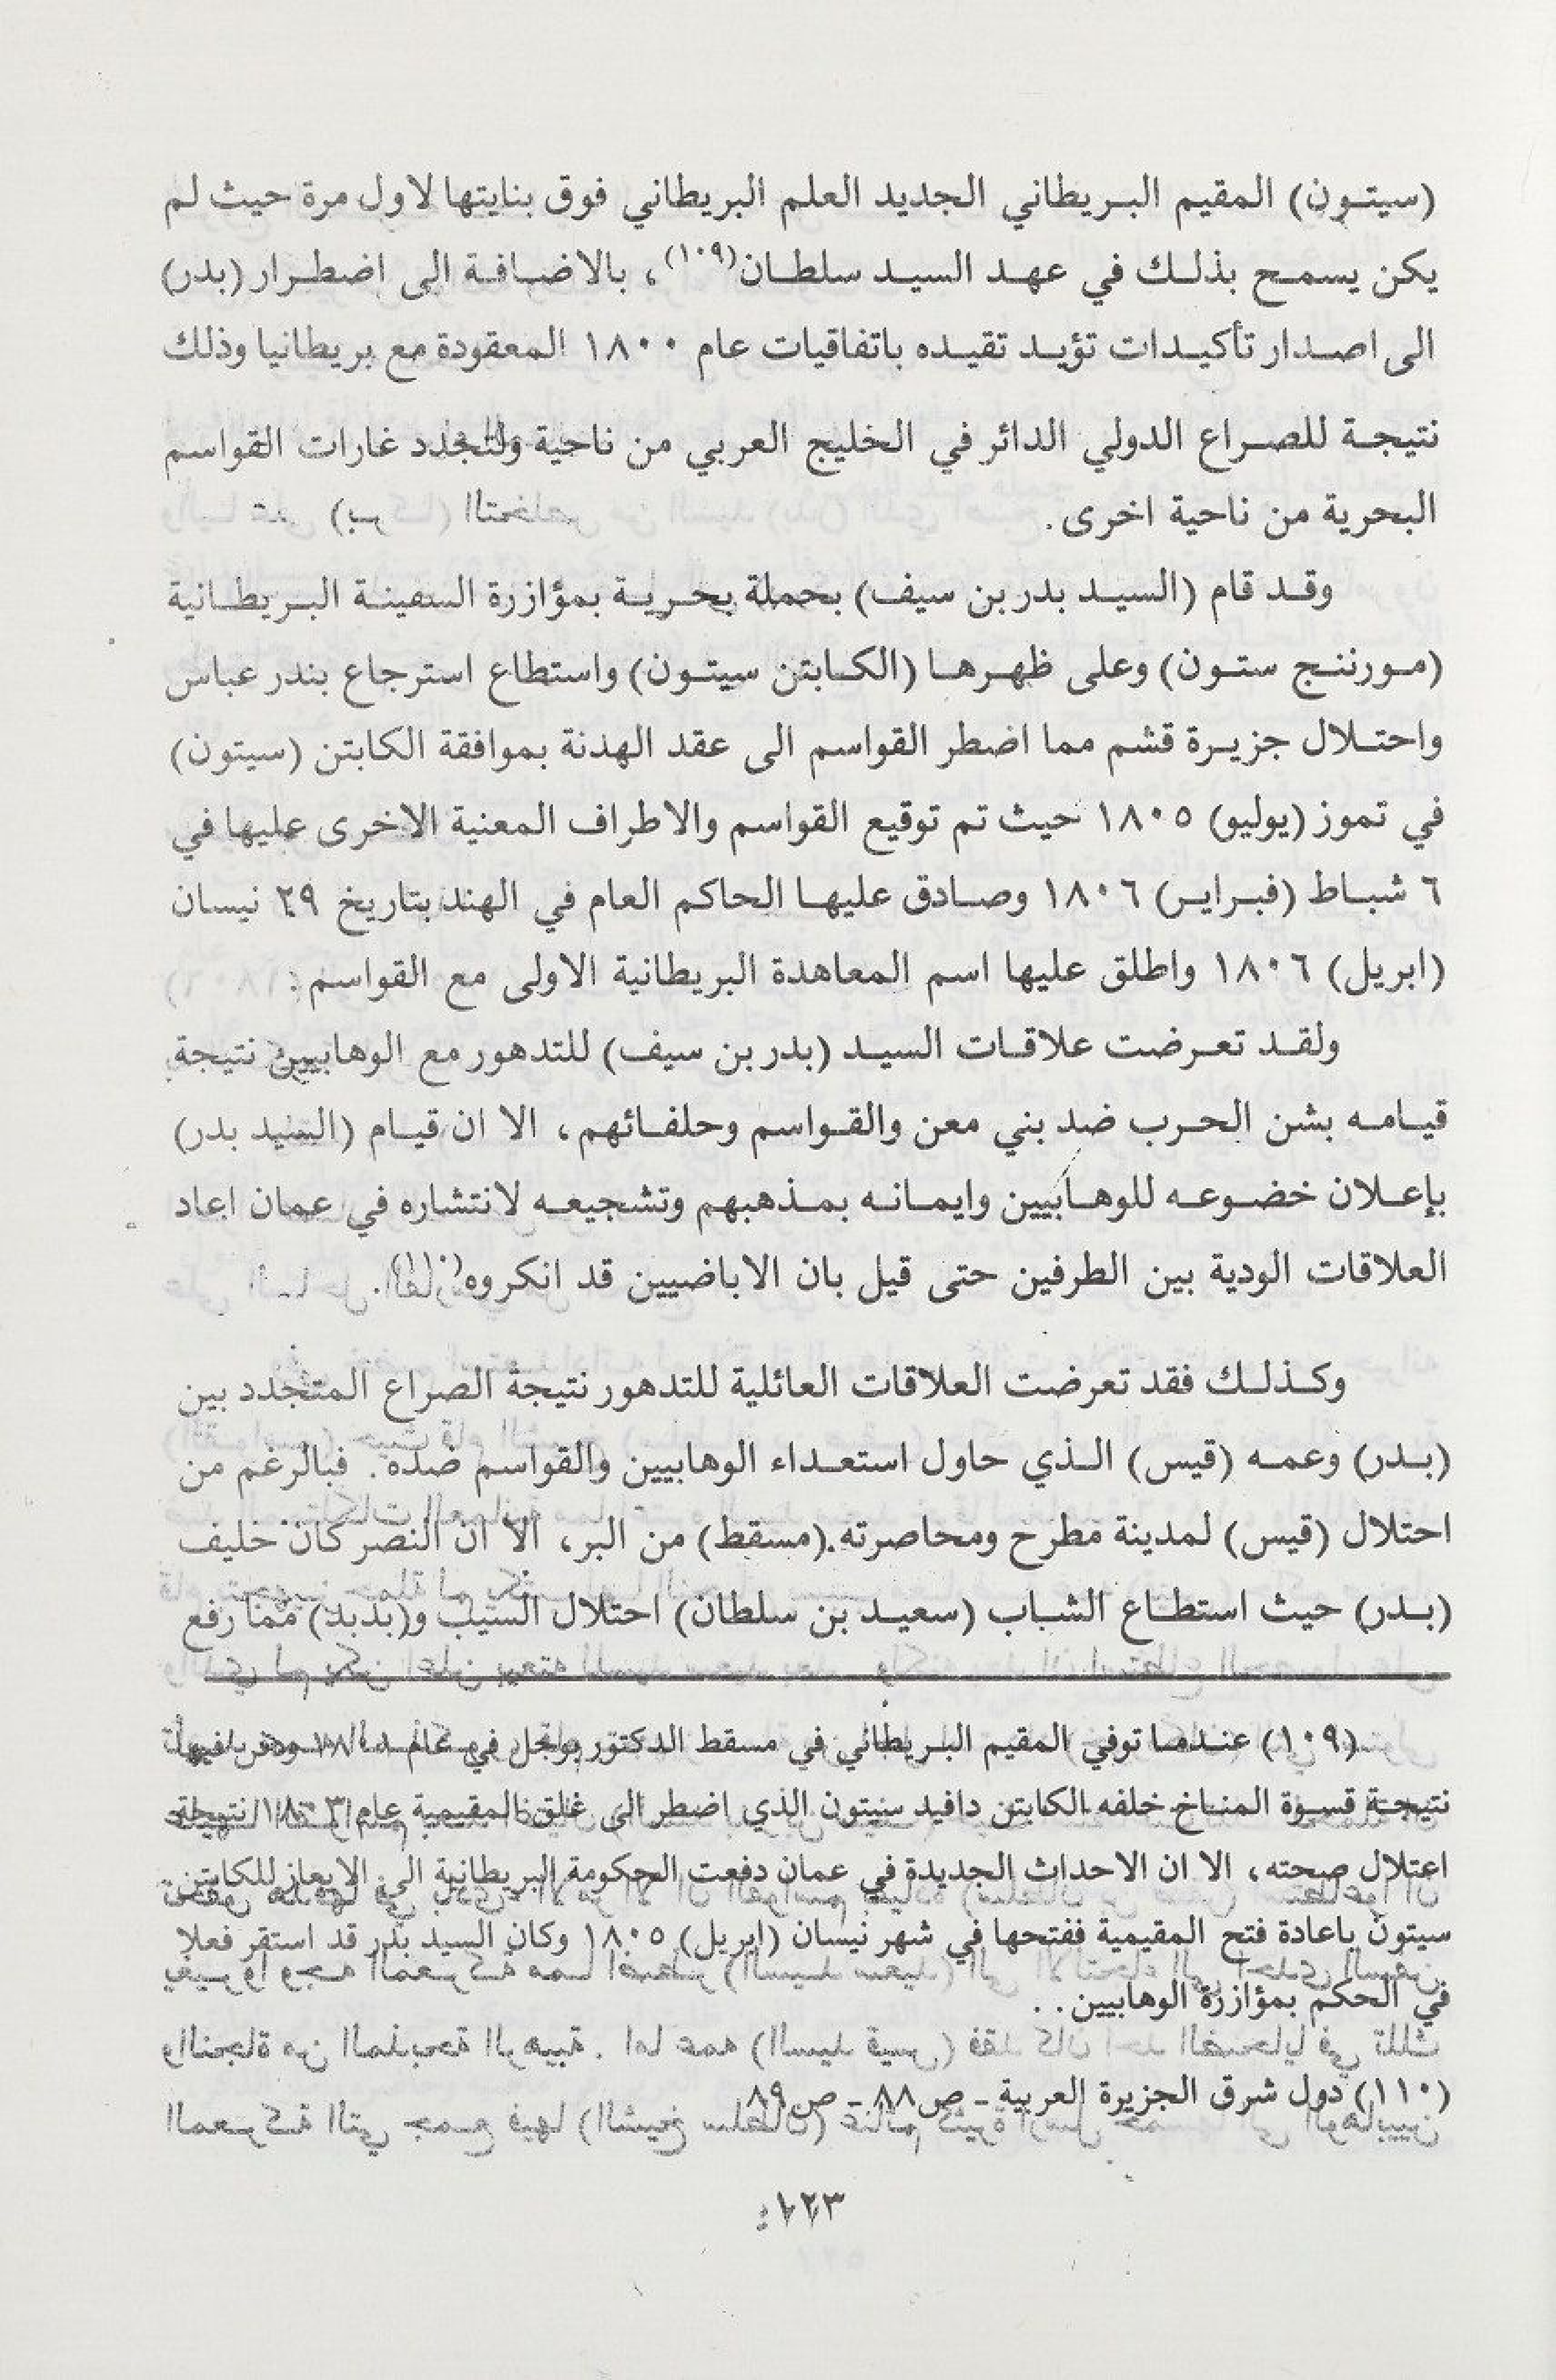 (سيتون) المقيم البريطاني الجديد العلم البريطاني فوق بنايتها لاول مرة حيث لم
يكن يسمح بذلك في عهد السيد سلطان(١٠٩)، بالاضافة الى اضطرار (بدر)
الى اصدار تأكيدات تؤيد تقيده باتفاقيات عام ١٨٠٠ المعقودة مع بريطانيا وذلك
نتيجة للصراع الدولي الدائر في الخليج العربي من ناحية ولتجدد غارات القواسم
البحرية من ناحية اخرى.
وقد قام (السيد بدر بن سيف) بحملة بحرية بمؤازرة السفينة البريطانية
(مورننج ستون) وعلى ظهرها (الكابتن سيتون) واستطاع استرجاع بندر عباس
واحتلال جزيرة قشم مما اضطر القواسم الى عقد الهدنة بموافقة الكابتن (سيتون)
في تموز (يوليو) ١٨٠٥ حيث تم توقيع القواسم والاطراف المعنية الاخرى عليها في
٦ شباط (فبراير) ١٨٠٦ وصادق عليها الحاكم العام في الهند بتاريخ ٢٩ نيسان
(ابريل) ١٨٠٦ واطلق عليها اسم المعاهدة البريطانية الاولى مع القواسم.
ولقد تعرضت علاقات السيد (بدر بن سيف) للتدهور مع الوهابيين نتيجة
قيامه بشن الحرب ضد بني معن والقواسم وحلفائهم، الا ان قيام (السيد بدر)
بإعلان خضوعه للوهابيين وايمانه بمذهبهم وتشجيعه لانتشاره في عمان اعاد
العلاقات الودية بين الطرفين حتى قيل بان الاباضيين قد انكروه(١١٠).
وكذلك فقد تعرضت العلاقات العائلية للتدهور نتيجة الصراع المتجدد بين
(بدر) وعمه (قيس) الذي حاول استعداء الوهابيين والقواسم ضده. فبالرغم من
احتلال (قيس) لمدينة مطرح ومحاصرته (مسقط) من البر، الا ان النصر كان حليف
(بدر) حيث استطاع الشاب (سعيد بن سلطان) احتلال السيب و(بدبد) مما رفع
(١٠٩) عندما توفي المقيم البريطاني في مسقط الدكتور بوجل في عام ودفن فيها
نتيجة قسوة المناخ خلفه الكابتن دافيد سيتون الذي اضطر الى غلق المقيمية عام ١٨٠٣ نتيجة
اعتلال صحته، الا ان الاحداث الجديدة في عمان دفعت الحكومة البريطانية الى الايعاز للكابتن
سيتون باعادة فتح المقيمية ففتحها في شهر نيسان (ابريل) ١٨٠٥ وكان السيد بدر قد استقر فعلا
في الحكم بمؤازرة الوهابيين..
(١١٠) دول شرق الجزيرة العربية - ص٨٨ - ص٨٩
١٢٣